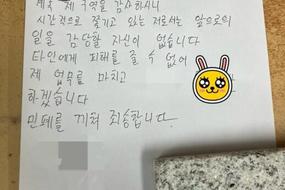 제 구역을 감사하시니
시간적으로 쫓기고 있는 저로서는 앞으로의
일을 감당할 자신이 없습니다
타인에게 피해를 줄 수 없어
제 업무를 마치고
하겠습니다
민폐를 끼쳐 죄송합니다.